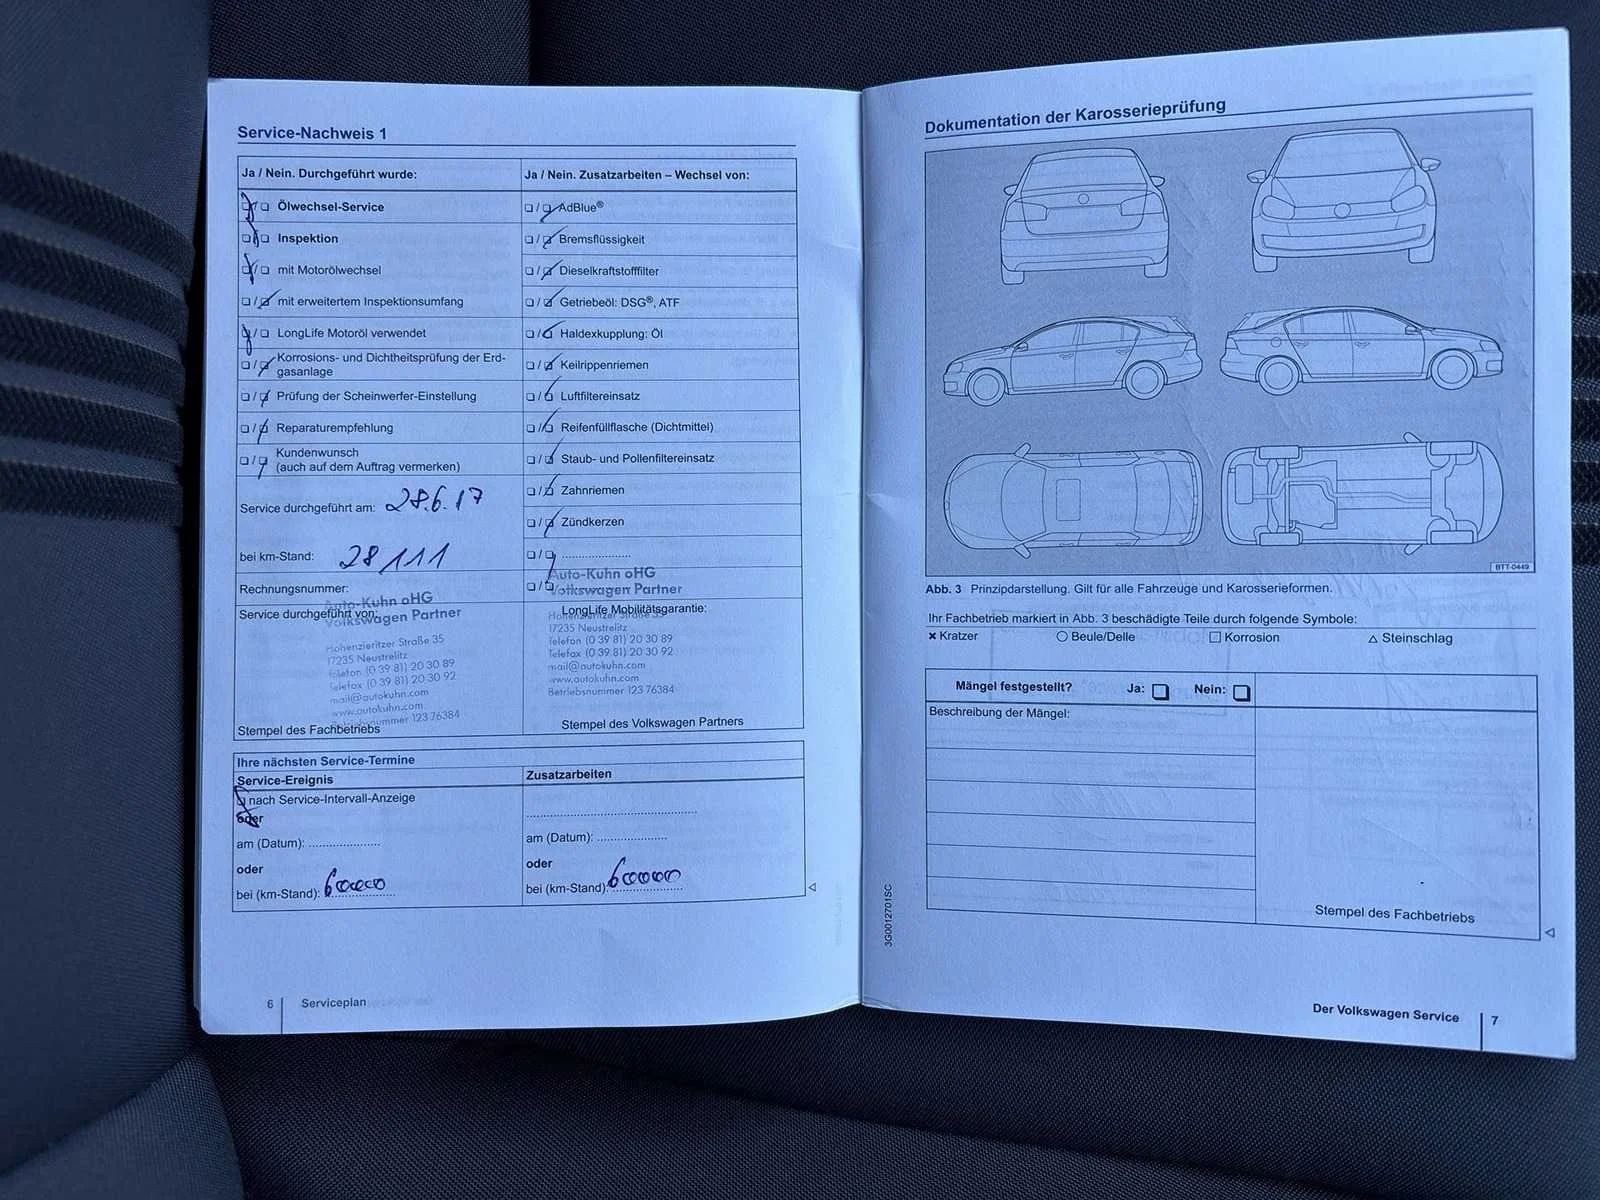 Service-Nachweis 1
Ja / Nein. Durchgeführt wurde:
Ölwechsel-Service
Inspektion
mit Motorölwechsel
mit erweitertem Inspektionsumfang
LongLife Motoröl verwendet
Korrosions- und Dichtheitsprüfung der Erd-
gasanlage
Prüfung der Scheinwerfer-Einstellung
Reparaturempfehlung
Kundenwunsch
(auch auf dem Auftrag vermerken)
Service durchgeführt am: 28.6.17
bei km-Stand: 28111
Rechnungsnummer:
Service durchgeführt von:
Auto-Kuhn oHG
Volkswagen Partner
Hohenzieritzer Straße 35
17235 Neustrelitz
Telefon (0 39 81) 20 30 89
Telefax (0 39 81) 20 30 92
mail@autokuhn.com
www.autokuhn.com
Betriebsnummer 123 76384
Stempel des Fachbetriebs
Ja / Nein. Zusatzarbeiten – Wechsel von:
AdBlue®
Bremsflüssigkeit
Dieselkraftstofffilter
Getriebeöl: DSG®, ATF
Haldexkupplung: Öl
Keilrippenriemen
Luftfiltereinsatz
Reifenfüllflasche (Dichtmittel)
Staub- und Pollenfiltereinsatz
Zahnriemen
Zündkerzen
Auto-Kuhn oHG
Volkswagen Partner
LongLife Mobilitätsgarantie:
Hohenzieritzer Straße 35
17235 Neustrelitz
Telefon (0 39 81) 20 30 89
Telefax (0 39 81) 20 30 92
mail@autokuhn.com
www.autokuhn.com
Betriebsnummer 123 76384
Stempel des Volkswagen Partners
Ihre nächsten Service-Termine
Service-Ereignis
nach Service-Intervall-Anzeige
oder
am (Datum):
oder
bei (km-Stand):
Zusatzarbeiten
am (Datum):
oder
bei (km-Stand):
6 Serviceplan
Dokumentation der Karosserieprüfung
BTT-0449
Abb. 3 Prinzipdarstellung. Gilt für alle Fahrzeuge und Karosserieformen.
Ihr Fachbetrieb markiert in Abb. 3 beschädigte Teile durch folgende Symbole:
× Kratzer ○ Beule/Delle □ Korrosion △ Steinschlag
Mängel festgestellt? Ja: Nein:
Beschreibung der Mängel:
Stempel des Fachbetriebs
3G0012701SC
Der Volkswagen Service 7